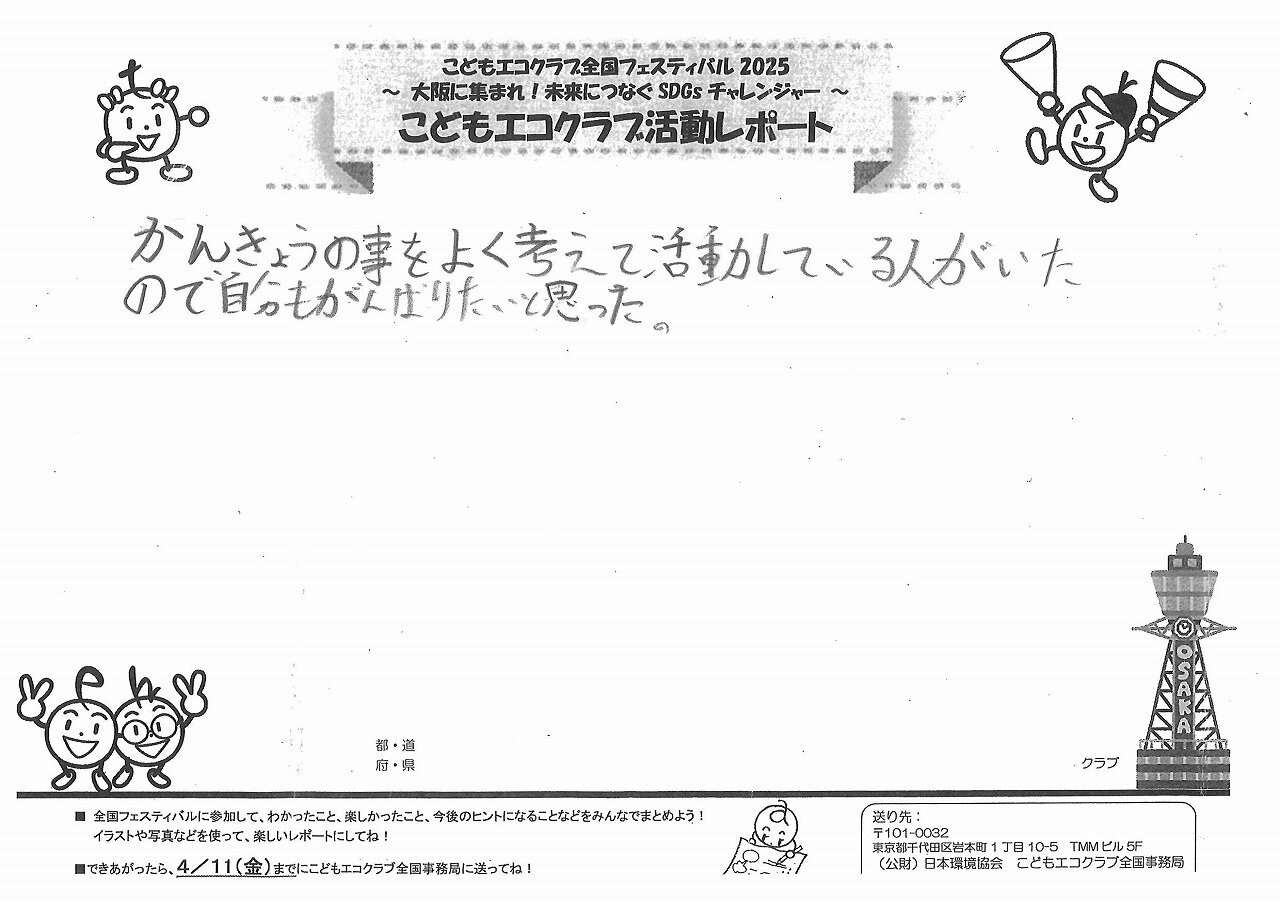 こどもエコクラブ全国フェスティバル 2025
～ 大阪に集まれ！未来につなぐ SDGs チャレンジャー ～
こどもエコクラブ活動レポート
かんきょうの事をよく考えて活動している人がいた
ので自分もがんばりたいと思った。
OSAKA
都・道
府・県
クラブ
■ 全国フェスティバルに参加して、わかったこと、楽しかったこと、今後のヒントになることなどをみんなでまとめよう！
イラストや写真などを使って、楽しいレポートにしてね！
■できあがったら、4／11(金)までにこどもエコクラブ全国事務局に送ってね！
送り先：
〒101-0032
東京都千代田区岩本町 1 丁目 10-5 TMM ビル 5F
（公財）日本環境協会 こどもエコクラブ全国事務局